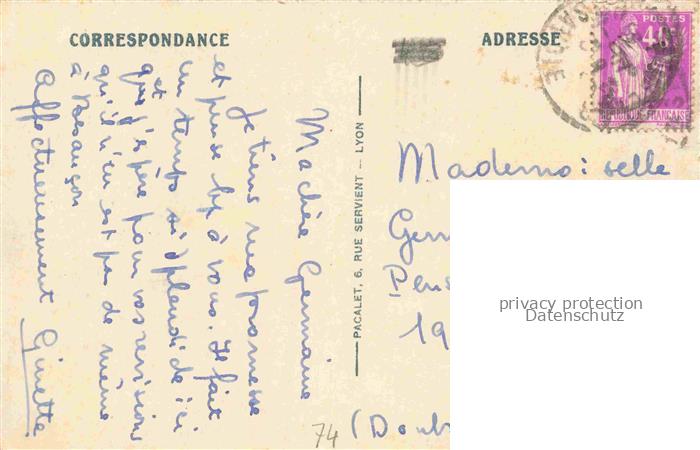 CORRESPONDANCE
ADRESSE
POSTES
40
REPUBLIQUE FRANÇAISE
Ma chère Germaine
Je tiens ma promesse
et pense bp à vous. Il fait
un temps si splendide ici
et
que j'espère pour vos revisions
qu'il n'en est pas de même
à Besançon
Affectueusement Ginette
PACALET, 6, RUE SERVIENT - LYON
Mademoiselle
Ger
Pens
19
(Doub
74
privacy protection
Datenschutz